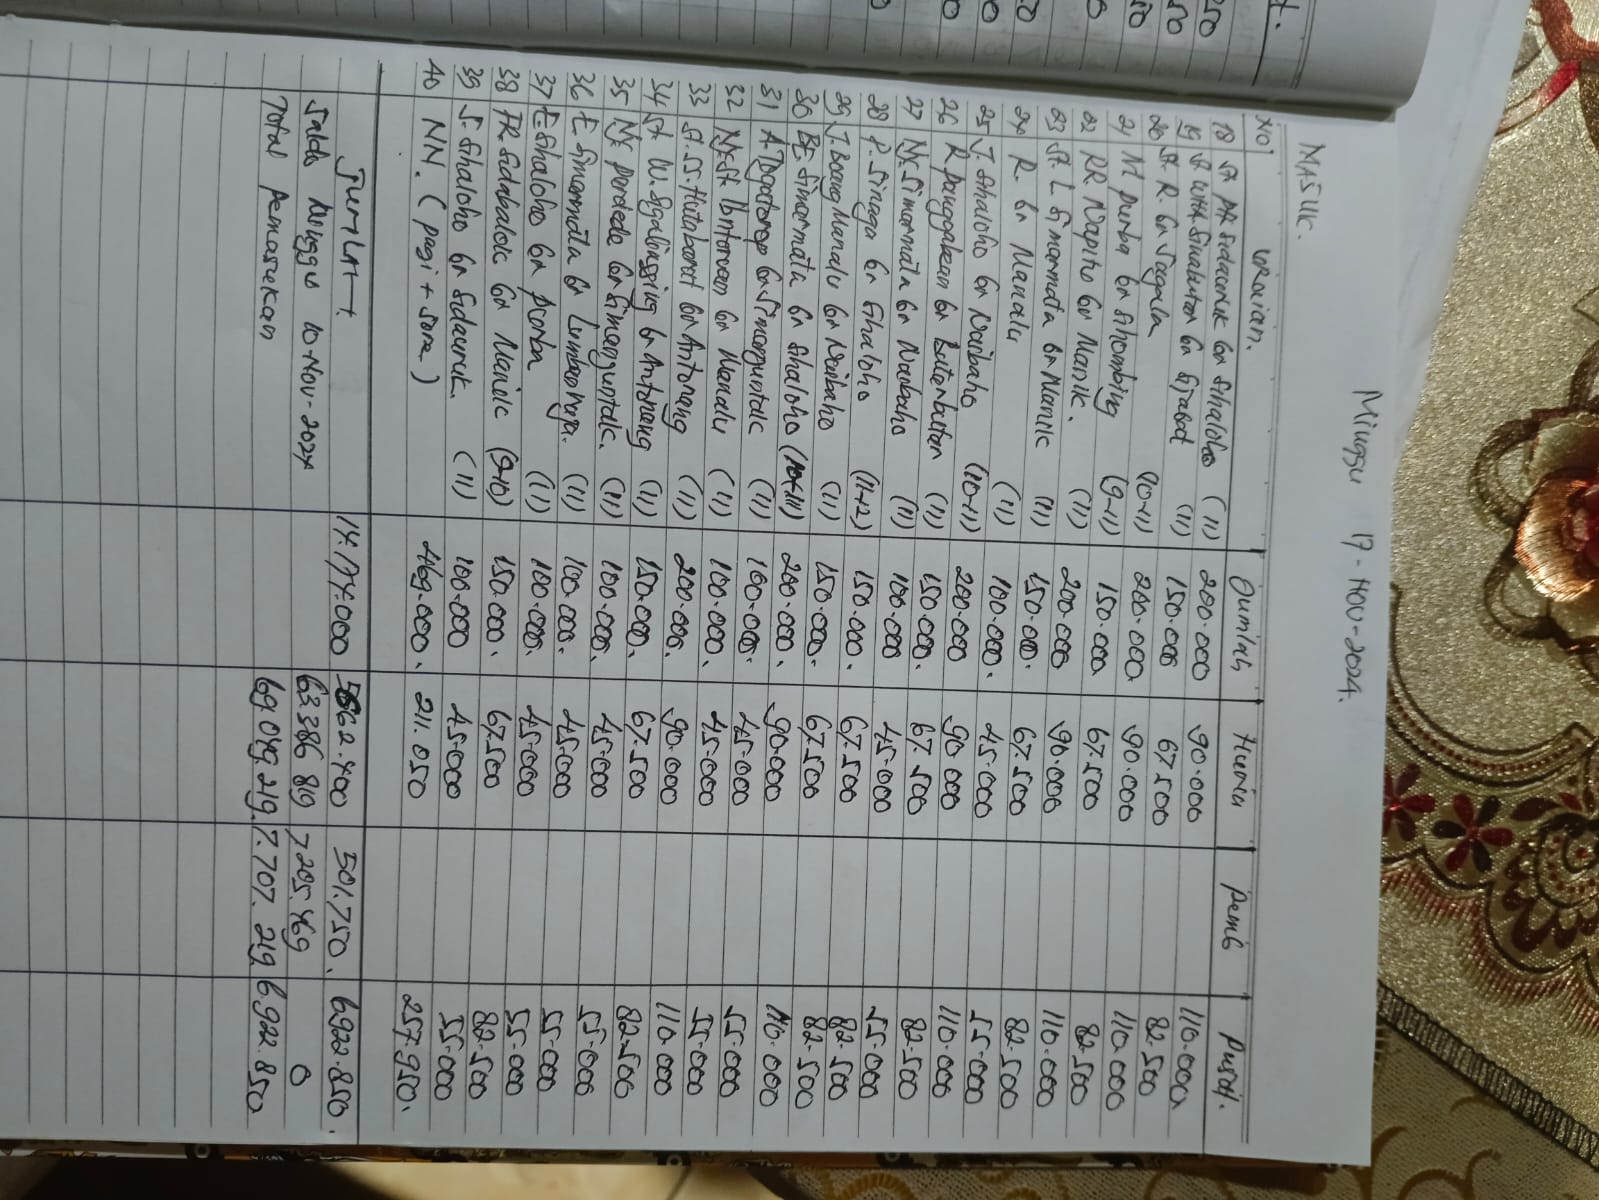 Minggu 17-NOV-2024.
MASUK.
NO Uraian. Jumlah Huria Pemb Pusat.
18 St PR Sidauruk br Sihaloho (11) 200.000 90.000 110.000
19 St Sinabutar br Sirabat (11) 150.000 67.500 82.500
20 St. R. br Sagala (10-11) 200.000 90.000 110.000
21 M purba br Sihombing (9-11) 150.000 67.500 82.500
22 RR Napitu br Manik. (11) 200.000 90.000 110.000
23 St. L Simarmata br Manik (11) 150.000. 67.500 82.500
24 R. br Manalu (11) 100.000. 45.000 55.000
25 J. Sihaloho br Naibaho (10-11) 200.000 90.000 110.000
26 R panggabean br Lutenbutan (11) 150.000. 67.500 82.500
27 Ny. Simarmata br Naibaho (11) 100.000 45.000 55.000
28 P Sinaga br Sihaloho (11-12) 150.000. 67.500 82.500
29 J. Boang Manalu br Naibaho (11) 150.000. 67.500 82.500
30 BE. Simarmata br Sihaloho (10-11) 200.000. 90.000 110.000
31 A. Togatorop br Simangunidk (11) 100.000. 45.000 55.000
32 Ny. St br Manalu (11) 100.000. 45.000 55.000
33 St. S. Hutabarat br Aritonang (11) 200.000. 90.000 110.000
34 St W. Sigalingging br Aritonang (11) 150.000. 67.500 82.500
35 Ny pardede br Simanguntdk. (11) 100.000. 45.000 55.000
36 E Simarmata br Lumban raja. (11) 100.000. 45.000 55.000
37 E Sihaloho br purba (11) 100.000. 45.000 55.000
38 FR Sidabalok br Manik (9-10) 150.000. 67.500 82.500
39 S. Sihaloho br Sidauruk. (11) 100.000 45.000 55.000
40 NN. (pagi + sore) 469.000. 211.050 257.950.
JUMLAH 14.174.000 5662.400 501.750. 6.922.850.
Saldo Minggu 10-Nov-2024 63386 819 7205.469 0
Total pemasukan 69.049.219. 7.707.219. 6.922.850